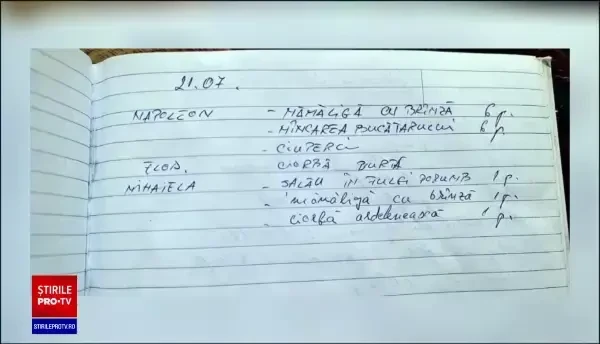 21.07.
NAPOLEON - MĂMĂLIGĂ CU BRÎNZĂ 6 p.
- MÎNCAREA BUCĂTARULUI 6 p.
- CIUPERCI
CIORBĂ BURTĂ
MIHAIELA - SALĂU ÎN FULGI PORUMB 1 p.
- mămăligă cu brînză 1 p.
- ciorbă ardelenească 1 p.
ȘTIRILE
PRO•TV
STIRILEPROTV.RO